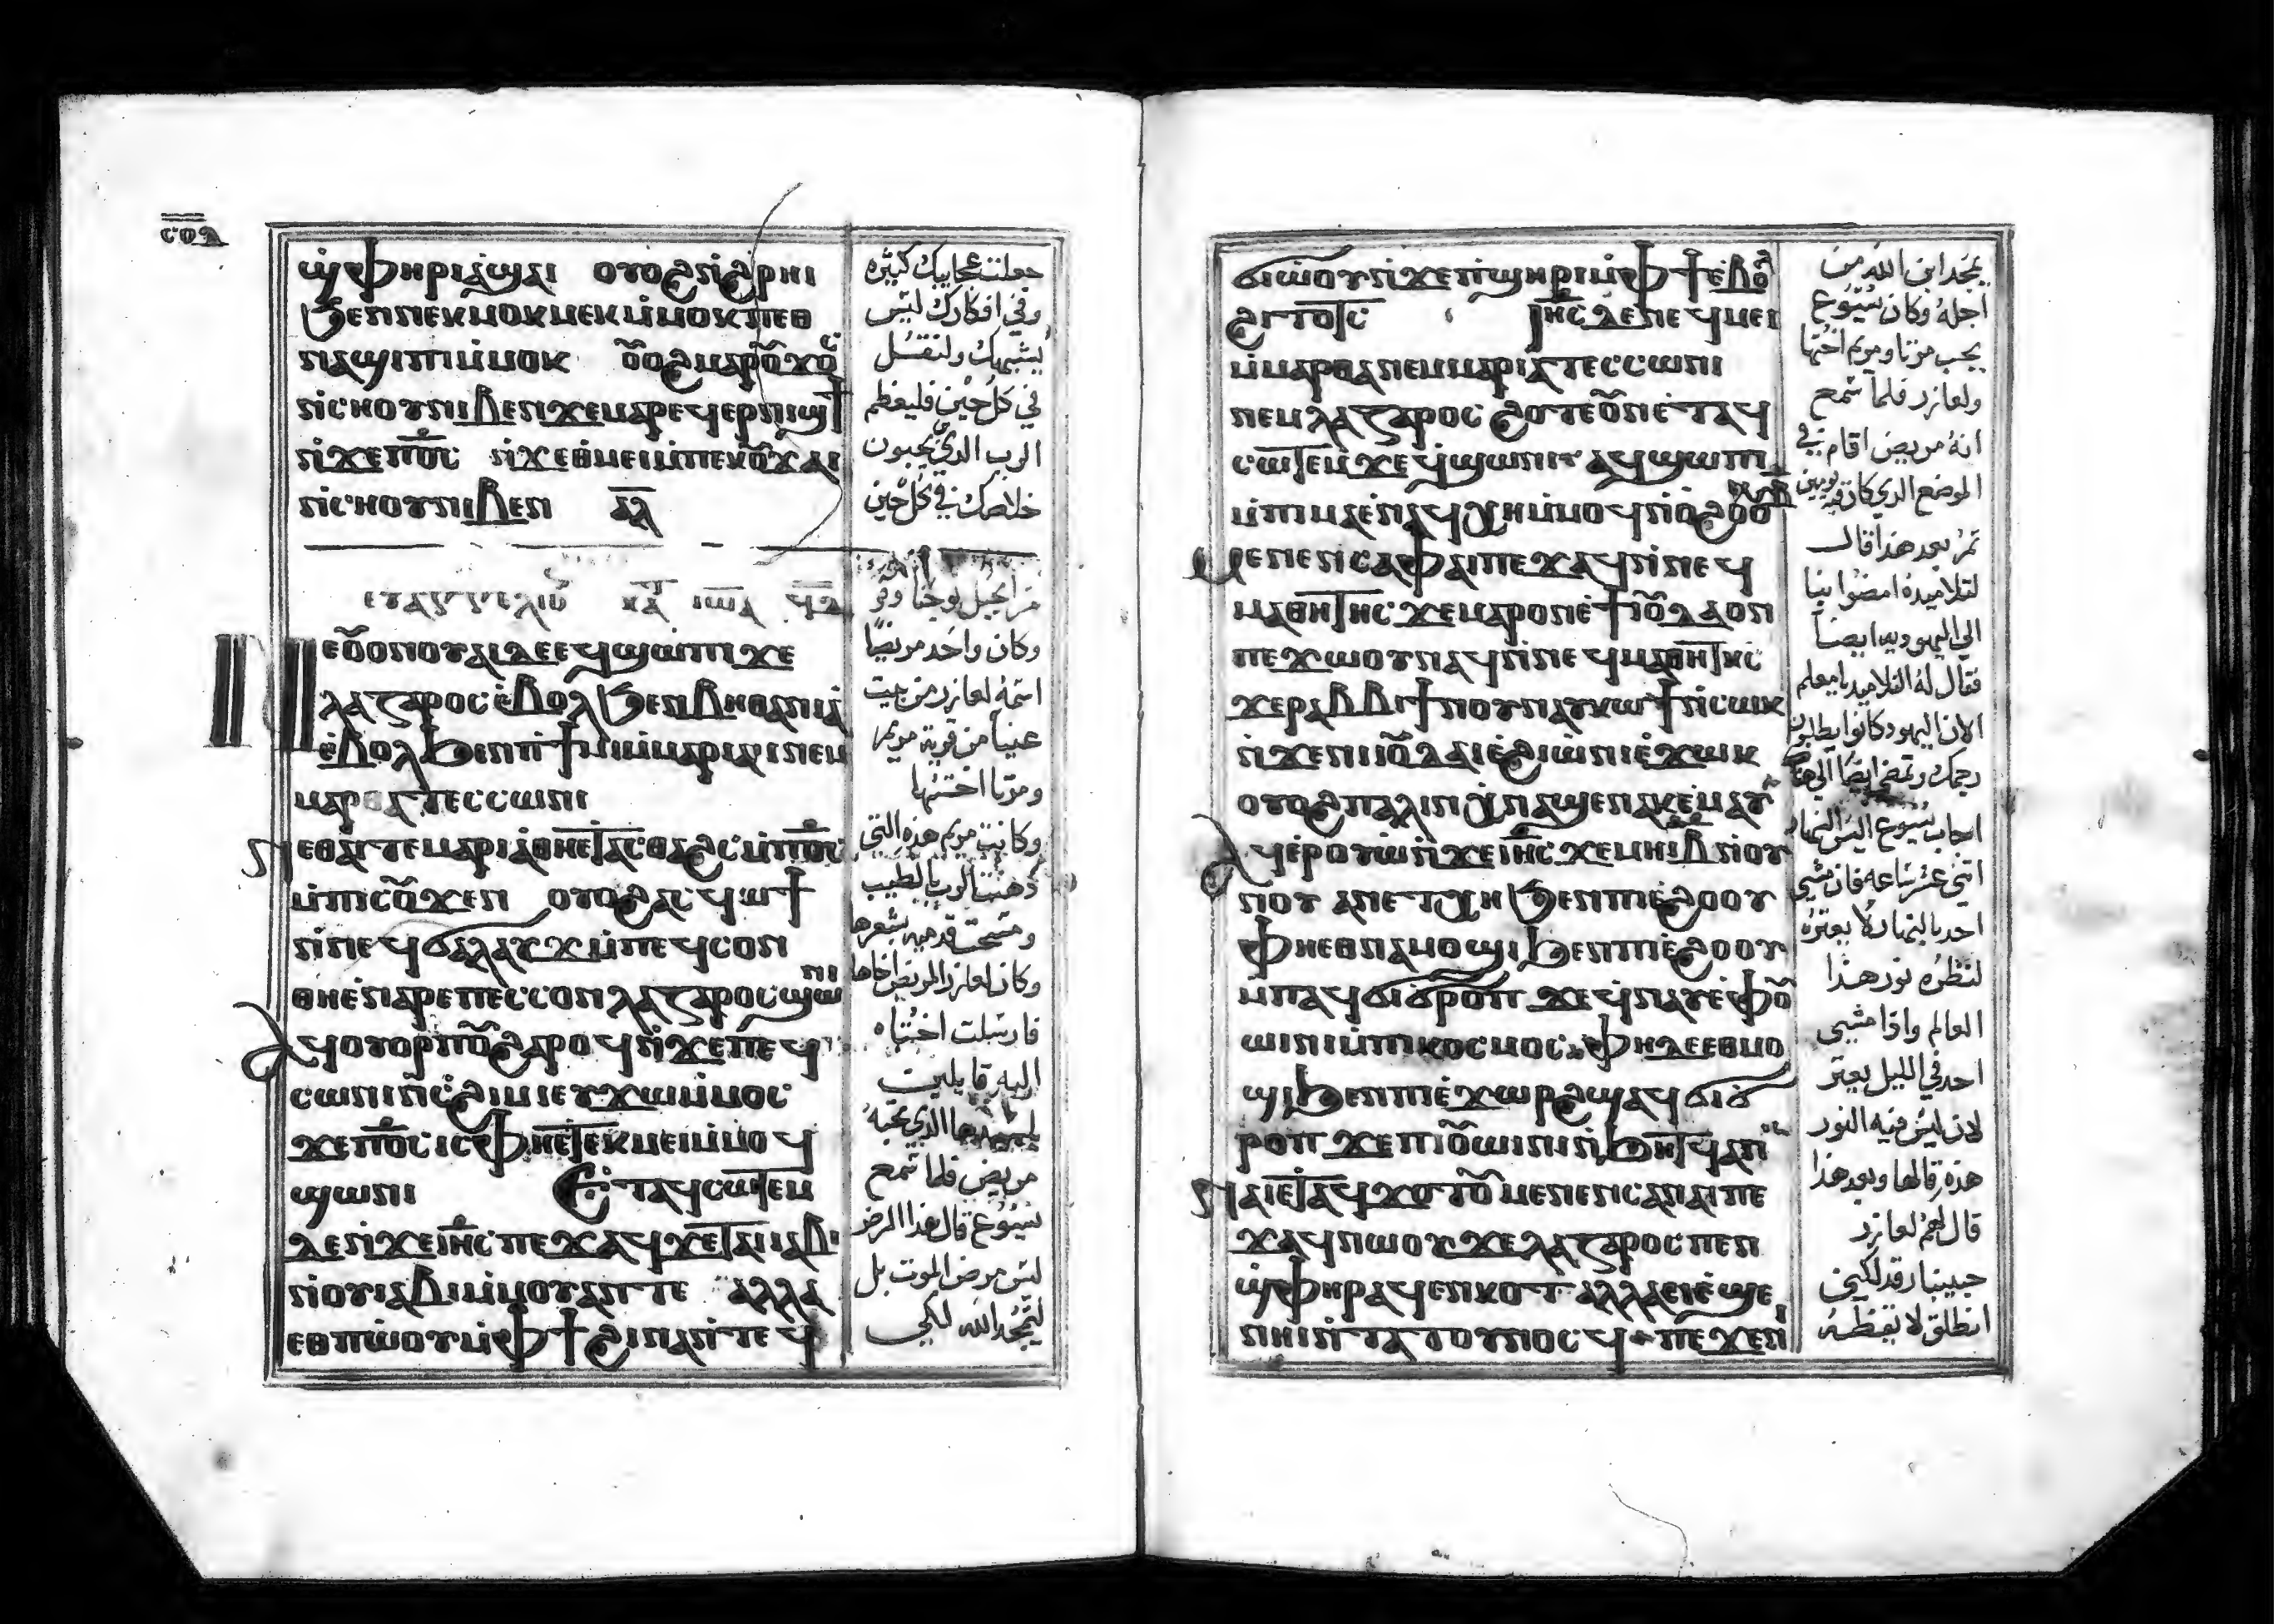 ⲥⲟⲇ
ϣ̀ⲫⲏⲣⲓⲁ̀ϣⲁⲓ ⲟⲩⲟϩⲛ̀ϩⲣⲏⲓ
ϧⲉⲛⲛⲉⲕⲙⲟⲕⲙⲉⲕⲙ̀ⲙⲟⲛⲡⲉⲑ
ⲛⲁϣⲓⲛⲓⲙ̀ⲙⲟⲕ ⲟ̅ⲟϩⲙⲁⲣⲟ̅ⲭⲟ̅
ⲛ̀ⲥⲏⲟⲩⲛⲓⲃⲉⲛϫⲉⲙⲁⲣⲉϥⲉⲣⲛⲓϣϯ
ⲛ̀ϫⲉⲡⲟ̅ⲥ̅ ⲛ̀ϫⲉⲑⲙⲉⲓⲙ̀ⲡⲉⲕⲟ̅ϫⲁⲓ
ⲛ̀ⲥⲏⲟⲩⲛⲓⲃⲉⲛ ⲁ̅ⲗ̅
ⲉⲩⲁⲅⲅⲉⲗⲓⲟ̅ ⲕⲁ̅ ⲓⲱ̅ⲁ ϥ̅ⲇ̅
ⲛⲉⲟ̅ⲟⲛⲟⲩⲁⲓⲇⲉⲉϥϣⲱⲛⲓϫⲉ
ⲗⲁⲍⲁⲣⲟⲥⲉ̀ⲃⲟⲗϧⲉⲛⲃⲏⲑⲁⲛⲓⲁ̀
ⲉ̀ⲃⲟⲗϧⲉⲛⲡ̀ϯⲙⲓⲙ̀ⲙⲁⲣⲓⲁⲙⲛⲉⲙ
ⲙⲁⲣⲑⲁⲧⲉⲥⲥⲱⲛⲓ
ⲛⲉⲑⲁⲓⲧⲉⲙⲁⲣⲓⲁ̀ⲑⲏⲉⲧⲁⲥⲑⲁϩⲥⲙ̀ⲡⲟ̅ⲥ̅
ⲙ̀ⲡⲓⲥⲟ̅ϫⲉⲛ ⲟⲩⲟϩⲁⲥϥⲱϯ
ⲛ̀ⲛⲉϥϭⲁⲗⲁⲩϫⲙ̀ⲡⲉϥⲥⲟⲛ
ⲑⲏⲉ̀ⲛⲁⲣⲉⲡⲉⲥⲥⲟⲛⲗⲁⲍⲁⲣⲟⲥϣⲱⲛⲓ
ⲁϥⲟⲩⲟⲣⲡⲟ̅ϩⲁⲣⲟϥⲛ̀ϫⲉⲡⲉϥ
ⲥⲱⲛⲓⲛ̀ⲥϩⲓⲙⲓⲉⲩϫⲱⲙ̀ⲙⲟⲥ
ϫⲉⲡⲟ̅ⲥ̅ⲓⲥⲫⲏⲉⲧⲉⲕⲙⲉⲓⲙ̀ⲙⲟϥ
ϣⲱⲛⲓ ⲉⲧⲁϥⲥⲱⲧⲉⲙ
ⲇⲉⲛ̀ϫⲉⲓⲏ̅ⲥ̅ⲡⲉϫⲁϥϫⲉⲧⲁⲓⲓⲁⲃⲓ
ⲛ̀ⲟⲩⲓⲁⲃⲓⲙ̀ⲙⲟⲩⲁⲛⲧⲉ ⲁⲗⲗⲁ
ⲉⲑⲡⲱ̀ⲟⲩⲙ̀ⲫϯϩⲓⲛⲁⲛ̀ⲧⲉϥ
جعلت عجايبك كثيره
وفي افكارك ليس
يشبهك ولنقسل
في كل حين فليعظم
الرب الذي يحبون
خلاصك في كل حين
من انجيل يوحنا
وكان واحد مريضا
اسمه لعازر من بيت
عنيا من قرية مريم
ومرتا اختها
وكانت مريم هذه التي
دهنت الرب بالطيب
ومسحت قدميه بشعرها
وكان لعازر المريض اخاها
فارسلت اختاه
اليه قايلين
الذي تحبه
مريض فلما سمع
يسوع قال هذا المرض
ليس مرض الموت بل
لتمجد الله لكي
ϭⲓⲱ̀ⲟⲩⲛ̀ϫⲉⲡ̀ϣⲏⲣⲓⲙ̀ⲫϯⲉ̀ⲃⲟ̅
ϩⲓⲧⲟⲧⲥ ⲓⲏ̅ⲥ̅ⲇⲉⲛⲉϥⲙⲉⲓ
ⲙ̀ⲙⲁⲣⲑⲁⲛⲉⲙⲙⲁⲣⲓⲁ̀ⲧⲉⲥⲥⲱⲛⲓ
ⲛⲉⲙⲗⲁⲍⲁⲣⲟⲥ ϩⲟⲧⲉⲟ̅ⲛⲉ̀ⲧⲁϥ
ⲥⲱⲧⲉⲙϫⲉϥϣⲱⲛⲓⲁϥϣⲱⲡⲓ
ⲙ̀ⲡⲓⲙⲁⲉ̀ⲛⲁϥⲭⲏⲙ̀ⲙⲟϥⲛ̀ⲉ̀ϩⲟⲟⲩ ⲃ̅
ⲙⲉⲛⲉⲛⲥⲁⲫⲁⲓⲡⲉϫⲁϥⲛ̀ⲛⲉϥ
ⲙⲁⲑⲏⲧⲏⲥϫⲉⲙⲁⲣⲟⲛⲉ̀ϯⲟ̅ⲇⲉⲟⲛ
ⲡⲉϫⲱⲟⲩⲛⲁϥⲛ̀ⲛⲉϥⲙⲁⲑⲏⲧⲏⲥ
ϫⲉⲣⲁⲃⲃⲓϯⲛⲟⲩⲛⲁⲩⲕⲱϯⲛ̀ⲥⲱⲕ
ⲛ̀ϫⲉⲛⲓⲟ̅ⲇⲁⲓⲉ̀ϩⲓⲱ̀ⲛⲓⲉ̀ϫⲱⲕ
ⲟⲩⲟϩⲡⲁⲗⲓⲛⲭ̀ⲛⲁϣⲉⲛⲁⲕⲉ̀ⲙⲁⲩ
ⲁϥⲉ̀ⲣⲟⲩⲱ̀ⲛ̀ϫⲉⲓⲏ̅ⲥ̅ϫⲉⲙⲏⲓⲃ̅ⲛ̀ⲟⲩ
ⲛⲟⲩ ⲁⲛⲉⲧⲭⲏϧⲉⲛⲡⲓⲉ̀ϩⲟⲟⲩ
ⲫⲏⲉⲑⲛⲁⲙⲟϣⲓϧⲉⲛⲡⲓⲉ̀ϩⲟⲟⲩ
ⲙ̀ⲡⲁϥϭⲓϭⲣⲟⲡ ϫⲉϥ̀ⲛⲁⲩⲉ̀ⲫⲟ̅
ⲱⲓⲛⲓⲙ̀ⲡⲓⲕⲟⲥⲙⲟⲥ ⲫⲏⲇⲉⲉⲑⲙⲟ
ϣⲓϧⲉⲛⲡⲓⲉ̀ϫⲱⲣϩϣⲁϥϭⲓϭ
ⲣⲟⲡ ϫⲉⲡⲓⲟ̅ⲱⲓⲛⲓⲛ̀ϧⲏⲧϥⲁⲛ
ⲛⲁⲓⲉⲧⲁϥϫⲟⲧⲟ̅ ⲙⲉⲛⲉⲛⲥⲁⲛⲁⲓⲡⲉ
ϫⲁϥⲛⲱⲟⲩϫⲉⲗⲁⲍⲁⲣⲟⲥⲡⲉⲛ
ϣ̀ⲫⲏⲣⲁϥⲉⲛⲕⲟⲧ ⲁⲗⲗⲁⲉⲓⲉ̀ϣⲉ
ⲛⲏⲓⲛ̀ⲧⲁⲧⲟⲩⲛⲟⲥϥ ⲡⲉϫⲉⲛ
يمجد ابن الله من
اجله وكان يسوع
يحب مرتا ومريم اختها
ولعازر فلما سمع
انه مريض اقام في
الموضع الذي كان فيه يومين
ثم بعد هذا قال
لتلاميذه امضوا بنا
الي اليهوديه ايضا
فقال له التلاميذ يا معلم
الان اليهود كانوا يطلبون
رجمك وتمضي ايضا الي هناك
اجاب يسوع اليس النهار
اثني عشر ساعه فان مشي
احد بالنهار لا يعثر
لنظره نور هذا
العالم واذا مشي
احد في الليل يعثر
لان ليس فيه النور
هذه قالها وبعد هذا
قال لهم لعازر
حبيبنا رقد لكني
انطلق لايقظه